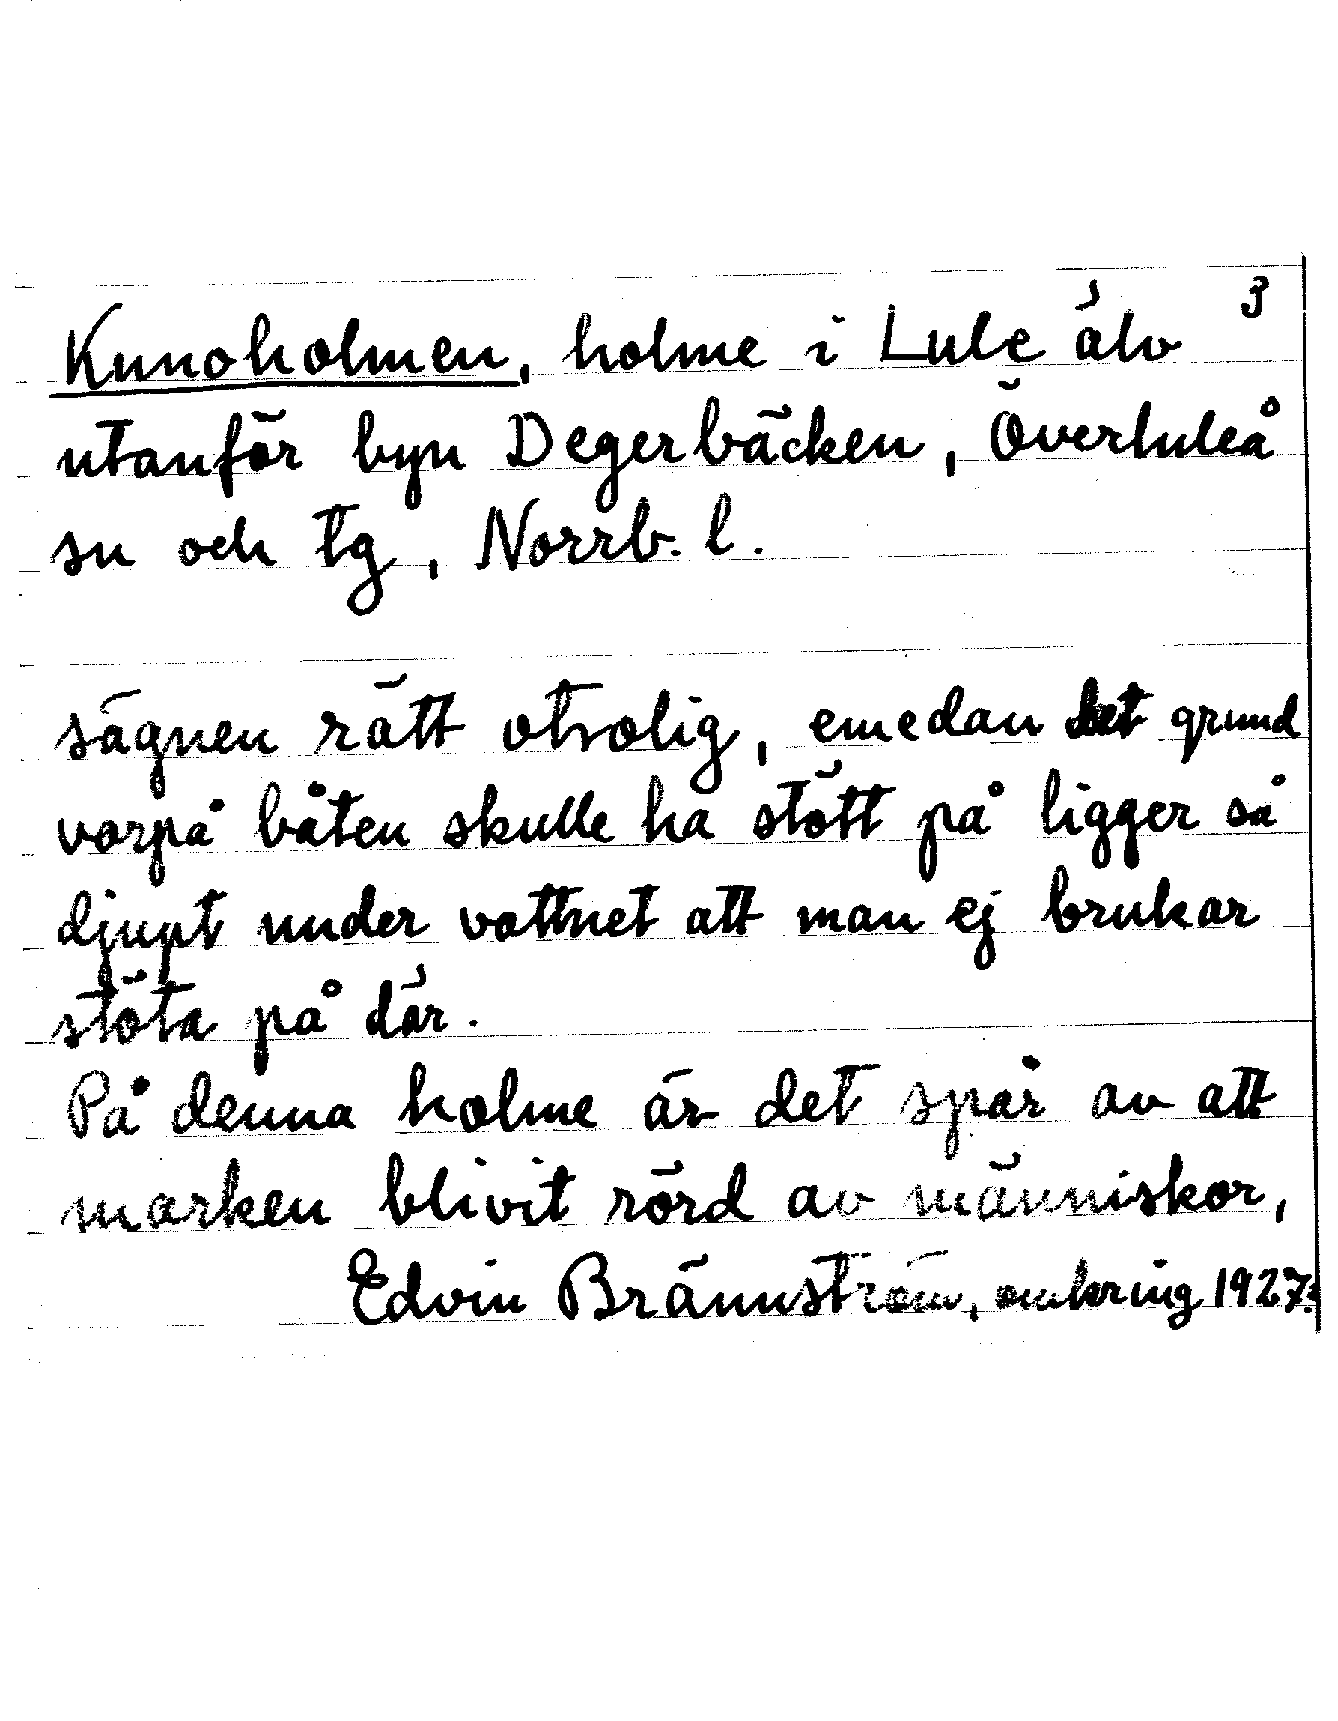 3
Kunoholmen, holme i Lule älv
utanför byn Degerbäcken, Överluleå
sn och tg, Norrb. l.
sägnen rätt otrolig, emedan det grund
varpå båten skulle ha stött på ligger så
djupt under vattnet att man ej brukar
stöta på där.
På denna holme är det spår av att
marken blivit rörd av människor,
Edvin Brännström, omkring 1927.